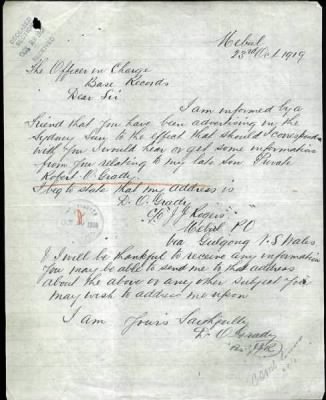 Mebul
23rd Oct 1919
The Officer in Charge
Base Records
Dear Sir
I am informed by a
Friend that you have been advertising in the
Sydney Sun to the effect that should I correspond
with you I would hear or get some information
from you relating to my late Son Private
Robert O'Grady
I beg to state that my address is
D. O'Grady
C/o J J Rogers
Mebul P.O
via Gulgong N.S Wales
I will be thankful to receive any information
you may be able to send me to that address
about the above or any other subject you
may wish to address me upon
I am Yours Faithfully
D. O'Grady